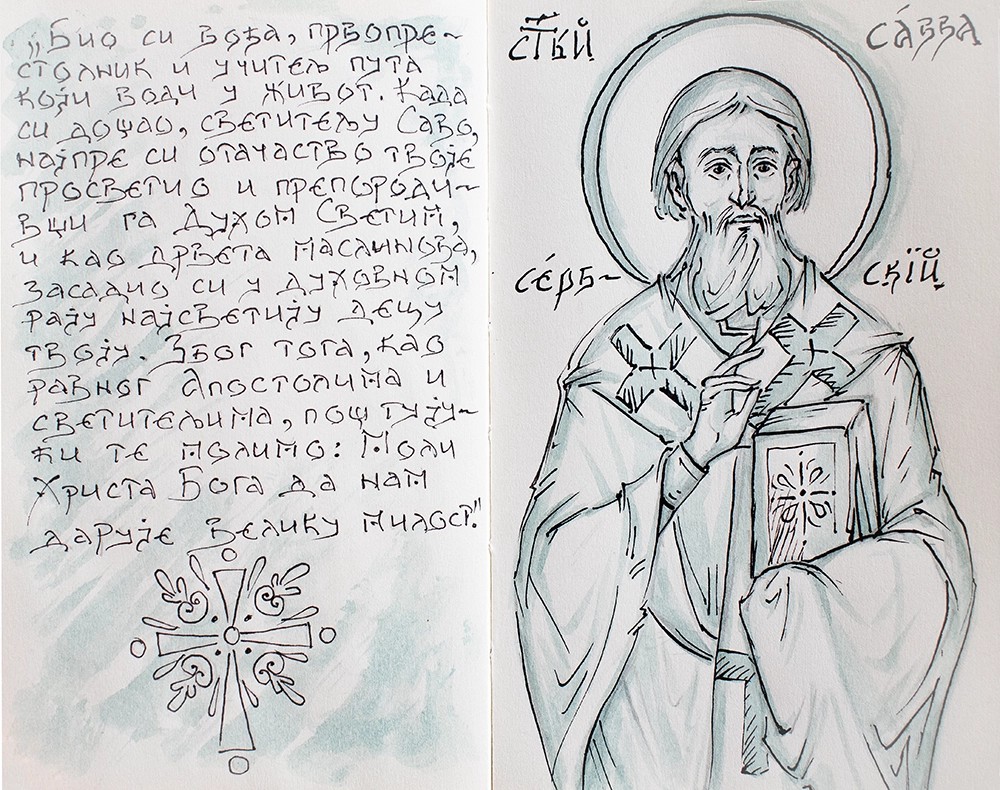 „Био си вођа, првопре-
столник и учитељ пута
који води у живот. Када
си дошао, светитељу Саво,
најпре си отачаство твоје
просветио и препороди-
вши га Духом Светим,
и као дрвета маслинова,
засадио си у духовном
рају најсветију децу
твоју. Због тога, као
равног Апостолима и
светитељима, поштују-
ћи те молимо: Моли
Христа Бога да нам
дарује велику милост."
ст҃кій са́вва
се́рб-
скїй